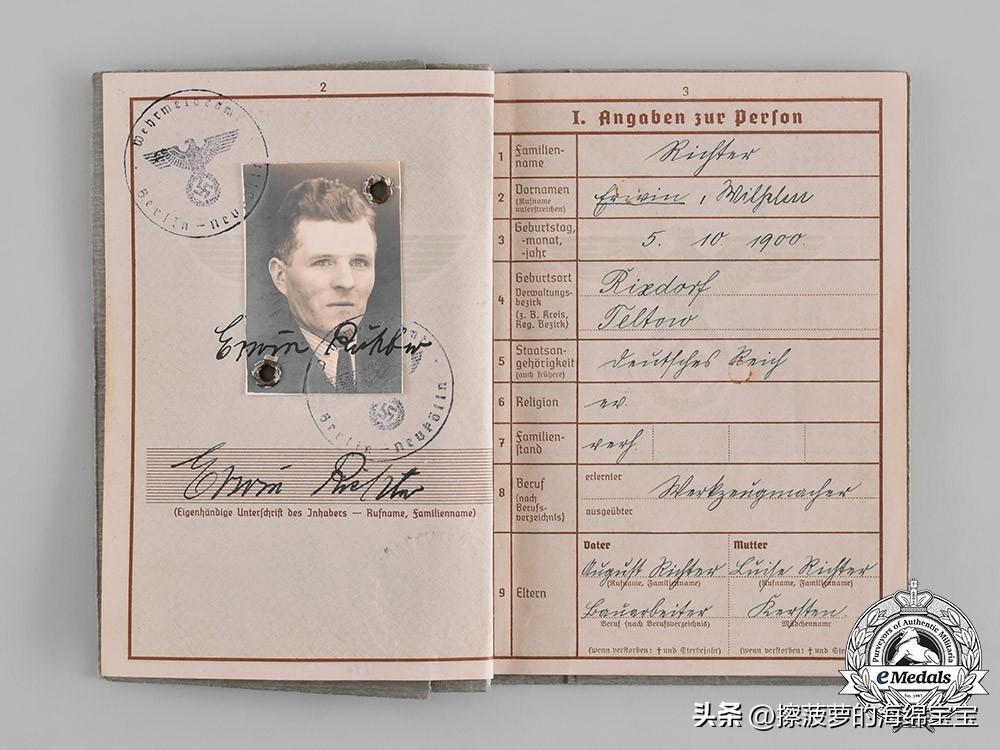 2
Wehrmeldeamt
Berlin-Neukölln
Erwin Richter
Berlin-Neukölln
Erwin Richter
(Eigenhändige Unterschrift des Inhabers — Rufname, Familienname)
3
I. Angaben zur Person
1 Familien-
name
Richter
2 Vornamen
(Rufname
unterstreichen)
Erwin, Wilhelm
3 Geburtstag,
-monat,
-jahr
5. 10. 1900.
4 Geburtsort
Verwaltungs-
bezirk
(z. B. Kreis,
Reg. Bezirk)
Rixdorf
Teltow
5 Staatsan-
gehörigkeit
(auch frühere)
Deutsches Reich
6 Religion
ev.
7 Familien-
stand
verh.
8 Beruf
(nach
Berufs-
verzeichnis)
erlernter
Werkzeugmacher
ausgeübter
9 Eltern
Vater
August Richter
(Rufname, Familienname)
Bauarbeiter
Beruf (nach Berufsverzeichnis)
(wenn verstorben: † und Sterbejahr)
Mutter
Luise Richter
(Rufname, Familienname)
Kersten
Mädchenname
(wenn verstorben: † und Ste
Purveyors of Authentic Militaria
eMedals
头条 @擦菠萝的海绵宝宝